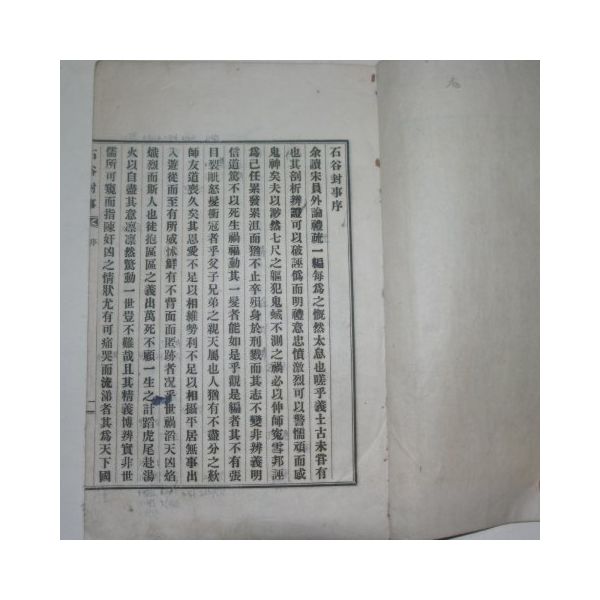 石谷封事序
余讀宋員外論禮疏一編每爲之慨然太息也嗟乎義士古未甞有
也其剖析辨證可以破誣僞而明禮意忠憤激烈可以警懦頑而感
鬼神矣夫以渺然七尺之軀犯鬼蜮不測之禍必以伸師寃雪邦誣
爲己任累發累沮而猶不止卒殞身於刑戮而其志不變非辨義明
信道篤不以死生禍福動其一髮者能如是乎觀是編者其不有張
目裂眦怒髮衝冠者乎父子兄弟之親天屬也人猶有不盡分之歎
師友道喪久矣其恩愛不足以相維勢利不足以相攝平居無事出
入遊從而至有所感怵鮮有不背面而匿跡者况乎世禍滔天凶焰
熾烈而斯人也徒抱區區之義出萬死不顧一生之計蹈虎尾赴湯
火以自盡其意凛凛然驚動一世豈不難哉且其精義博辨實非世
儒所可窺而指陳奸凶之情狀尤有可痛哭而流涕者其爲天下國
石谷封事 序 一